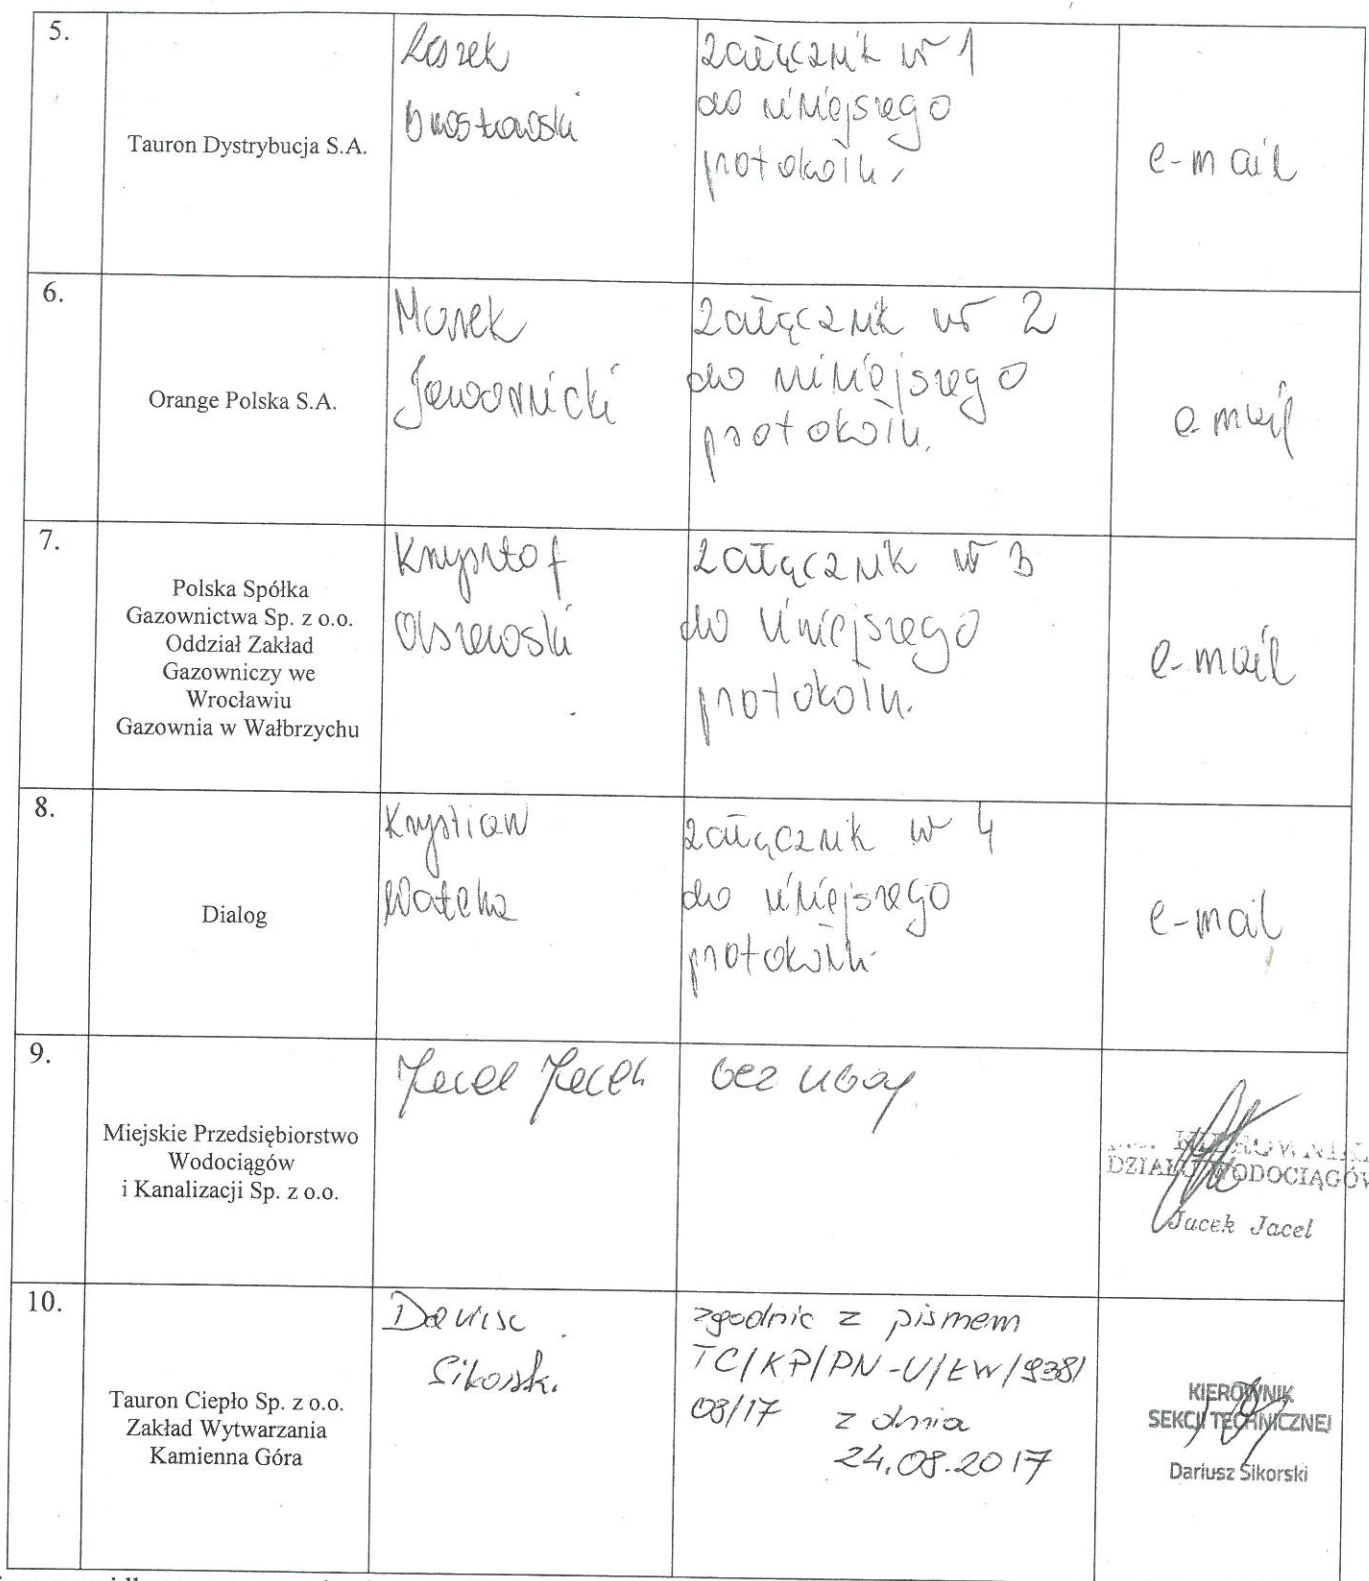 5.
Tauron Dystrybucja S.A.
Leszek
załącznik nr 1
do niniejszego
protokołu.
e-mail
6.
Orange Polska S.A.
Marek
Jawornicki
załącznik nr 2
do niniejszego
protokołu.
e-mail
7.
Polska Spółka
Gazownictwa Sp. z o.o.
Oddział Zakład
Gazowniczy we
Wrocławiu
Gazownia w Wałbrzychu
Krzysztof
Olszewski
załącznik nr 3
do niniejszego
protokołu.
e-mail
8.
Dialog
Krystian
załącznik nr 4
do niniejszego
protokołu.
e-mail
9.
Miejskie Przedsiębiorstwo
Wodociągów
i Kanalizacji Sp. z o.o.
Jacel Jacek
bez uwag
KIEROWNIK
DZIAŁU WODOCIĄGÓW
Jacek Jacel
10.
Tauron Ciepło Sp. z o.o.
Zakład Wytwarzania
Kamienna Góra
Dariusz
Sikorski
zgodnie z pismem
TC/KP/PN-U/EW/938/
08/17 z dnia
24.08.2017
KIEROWNIK
SEKCJI TECHNICZNEJ
Dariusz Sikorski